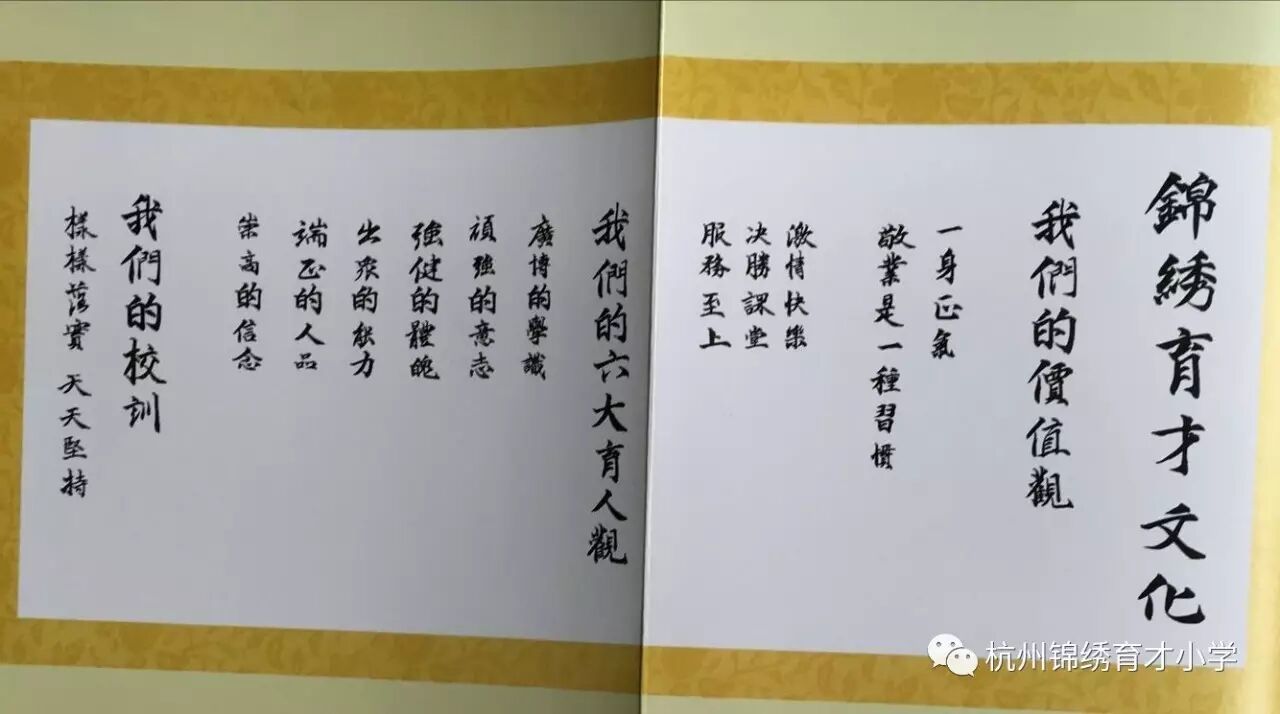 錦綉育才文化
我們的價值觀
一身正氣
敬業是一種習慣
激情快樂
决勝課堂
服務至上
我們的六大育人觀
廣博的學識
頑強的意志
強健的體魄
出衆的能力
端正的人品
崇高的信念
我們的校訓
樣樣落實 天天堅持
杭州锦绣育才小学